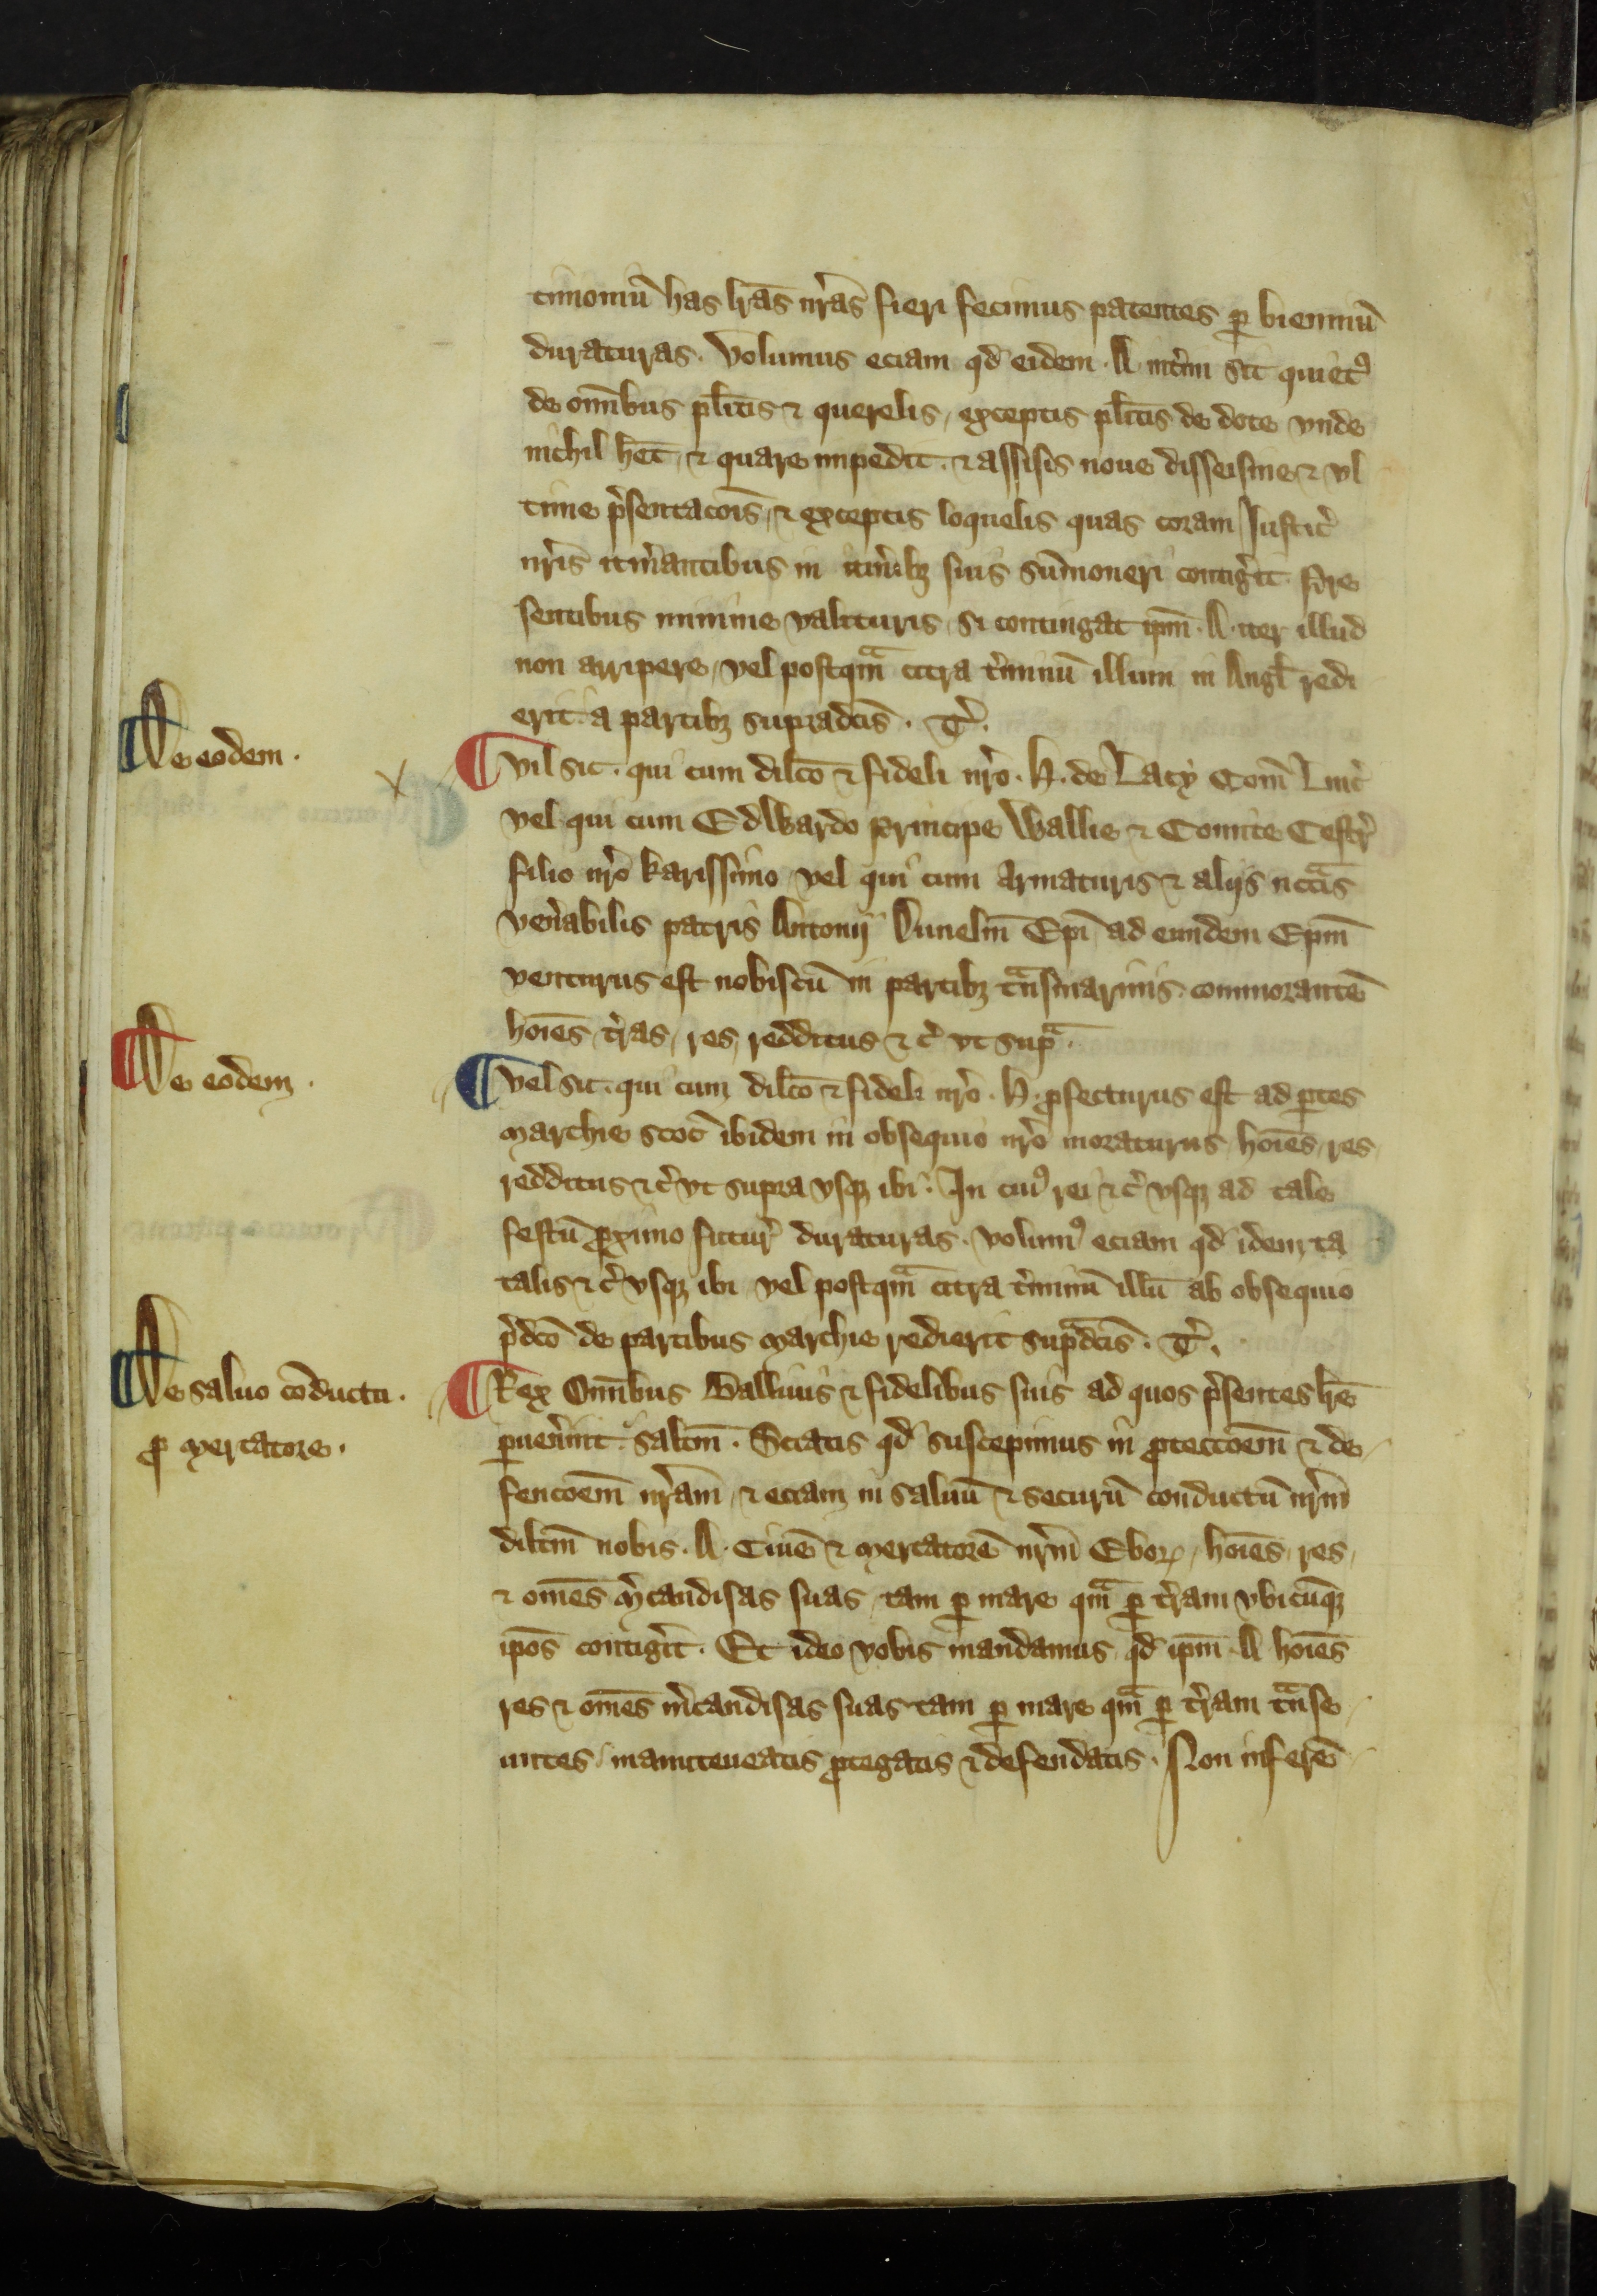 timoniū has lr̄as nr̄as fieri fecimus patentes ꝑ bienniū
duraturas. Volumus eciam qd̄ eidem . A . int̉im sit quietꝰ
de om̄ibus pl̄itis ⁊ querelis, exceptis pl̄itis de dote vnde
nichil het̄, ⁊ quare impedit . ⁊ assisis noue disseisine ⁊ vl
time p̉sentacōis, ⁊ exceptis loquelis quas coram Iustic̉
nr̄is itin̉antibus in itin̉ibꝫ suis sūmoneri contig̉it. P̉re
sentibus minime valituris, si contingat ip̄m . A . iter illud
non arripere, vel postqᵃm citra t̉minū illum in Angl̄ redi
erit a partibꝫ supradc̄is . T̉.
De eodem .
¶ Vil sit . qui cum dilc̄o ⁊ fideli nr̄o . H . de Lacy Com̄ Linc̉
vel qui cum Edwardo principe Wallie ⁊ Comite Cestr̉
filio nr̄o karissimo vel qui cum armaturis ⁊ alijs necc̄ᵃis
ven̉abilis patris Antonij Dunelm̄ Ep̄i ad eundem Ep̄m
venturus est nobiscū in partibꝫ tᵃnsmarinis commorantē
hoīes, t̉ras, res, redditus ⁊ c̉ vt supᵃ .
De eodem .
¶ Vel sit . qui cum dilc̄o ⁊ fideli nr̄o . H . ꝓfecturus est ad ꝑtes
marchie Scoc̉ ibidem in obsequio nr̄o moraturus hoīes, res,
redditus ⁊ c̉ vt supra vsqꝫ ibi . In cuiꝰ rei ⁊ c̉ vsqꝫ ad tale
festū ꝓximo futur̉ duraturas . volumꝰ eciam qd̄ idem ta
talis ⁊ c̉ vsqꝫ ibi vel postqᵃm citra t̉minū illū ab obsequio
p̉dc̄o de partibus marchie redierit supᵃdc̄is . T̉.
De saluo cōductu .
ꝓ mercatore .
¶ Rex Om̄ibus Balliuis ⁊ fidelibus suis ad quos p̉sentes lr̄e
ꝑuen̉int salt̄m . Sciatis qd̄ suscepimus in ꝓteccōem̄ ⁊ de
fencōem̄ nr̄am, ⁊ eciam in saluū ⁊ securū conductū nr̄m
dilc̄m nobis . A . Ciuē ⁊ mercatorē nr̄m Eboꝝ, hoīes, res,
⁊ om̄es m̉candisas suas, tam ꝑ mare qᵃm ꝑ t̉ram vbicūqꝫ
ip̄os contig̉it . Et ideo vobis mandamus, qd̄ ip̄m . A hoīes
res ⁊ om̄es m̉candisas suas tam ꝑ mare qᵃm ꝑ t̉ram tᵃnse
untes, manuteneatis ꝓtegatis ⁊ defendatis . Non inferē